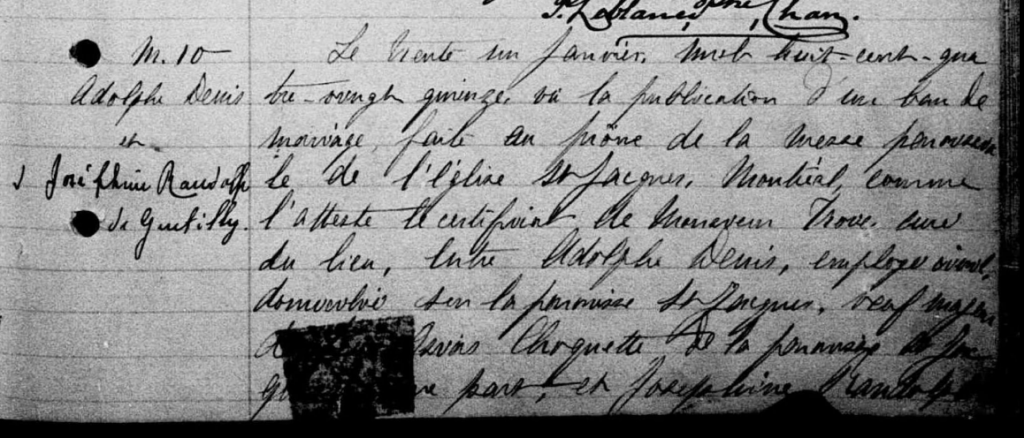 P. Leblanc, ptre, Chan.
M. 10
Adolphe Denis
et
Joséphine Randolph
de Gentilly.
Le trente un Janvier, mil huit-cent-qua
tre-vingt quinze, vu la publication d'un ban de
mariage, faite au prône de la messe paroissia
le de l'église St Jacques, Montréal, comme
l'atteste le certificat de Monsieur Troie, curé
du lieu, entre Adolphe Denis, employé civil,
domicilié sur la paroisse St Jacques, veuf majeur
Choquette de la paroisse St Jac-
part, et Josephine Randolph